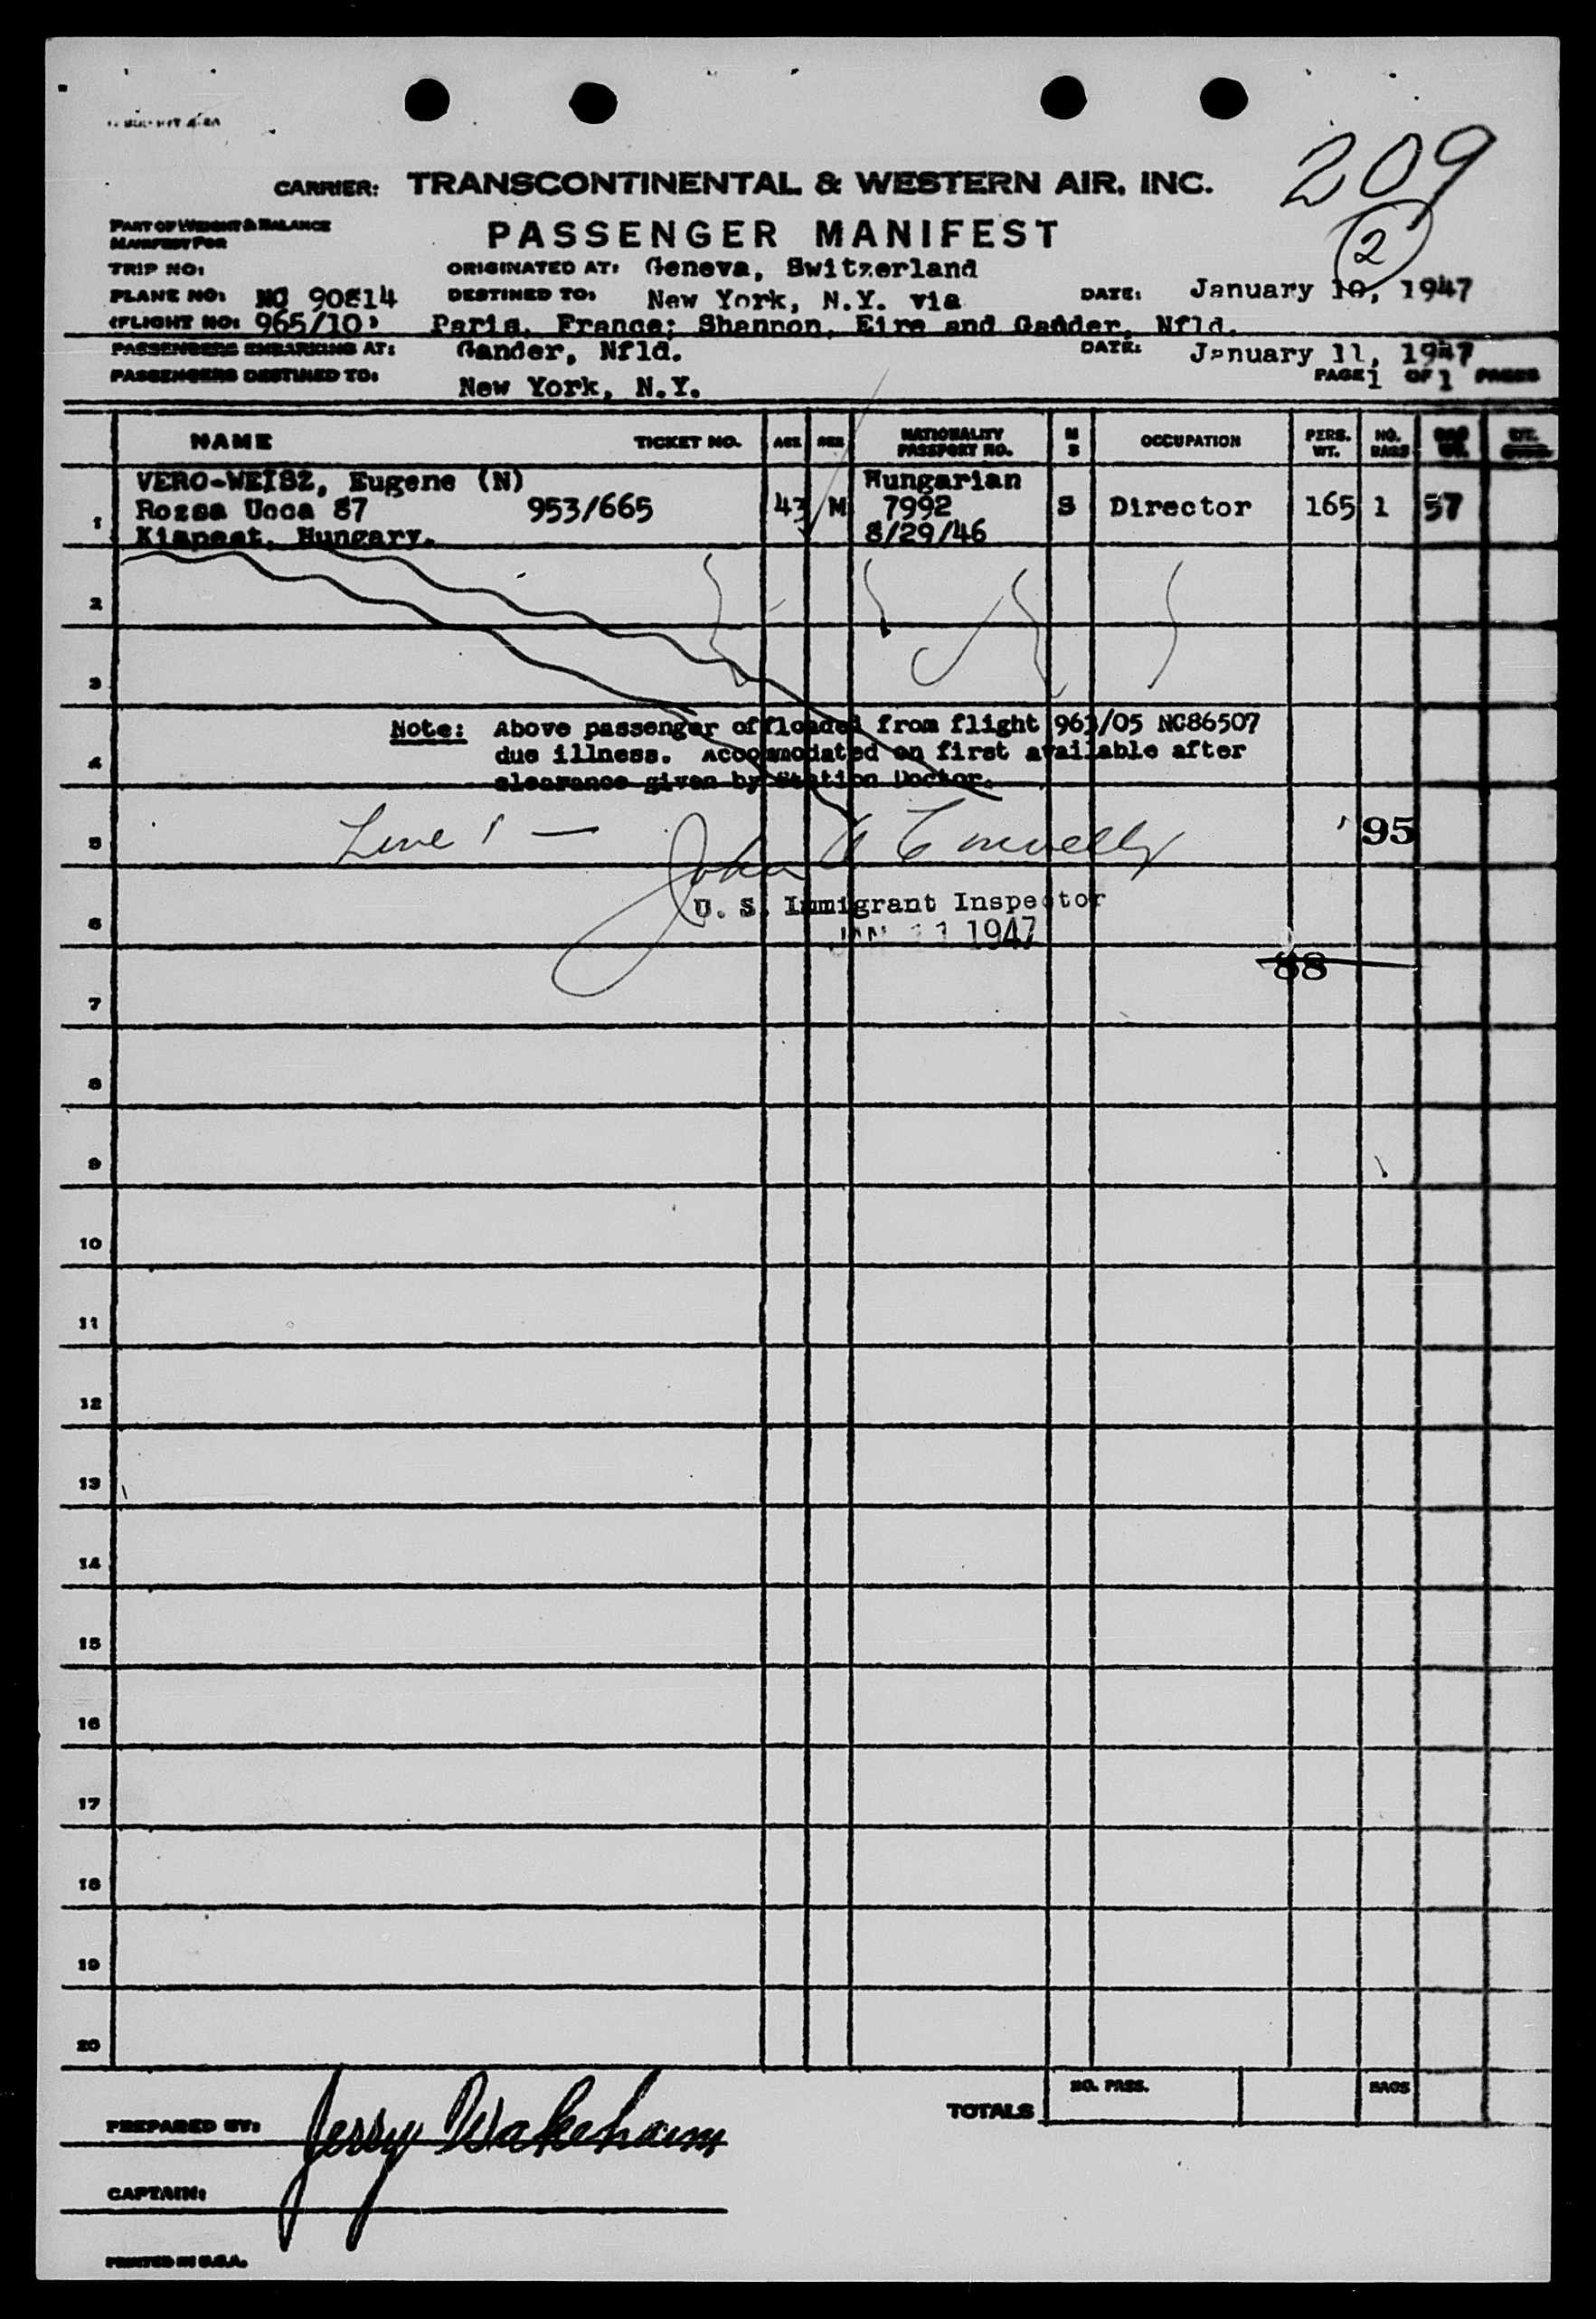 209
CARRIER: TRANSCONTINENTAL & WESTERN AIR, INC.
PART OF WEIGHT & BALANCE
MANIFEST FOR
PASSENGER MANIFEST
2
TRIP NO: ORIGINATED AT: Geneva, Switzerland
PLANE NO: NC 90814 DESTINED TO: New York, N.Y. via DATE: January 10, 1947
(FLIGHT NO: 965/10) Paris, France; Shannon, Eire and Gander, Nfld.
PASSENGERS EMBARKING AT: Gander, Nfld. DATE: January 11, 1947
PASSENGERS DESTINED TO: New York, N.Y. PAGE 1 OF 1 PAGES
NAME TICKET NO. AGE SEX NATIONALITY PASSPORT NO. M S OCCUPATION PERS. WT. NO. BAGS
VERO-WEISZ, Eugene (N) Hungarian
1 Rozsa Ucca 87 953/665 43 M 7992 S Director 165 1 57
Kispest, Hungary. 8/29/46
2
3
Note: Above passenger offloaded from flight 963/05 NC86507
4 due illness. Accommodated on first available after
clearance given by Station Doctor.
5 Line 1 — John A Connelly 95
6 U. S. Immigrant Inspector
JAN 11 1947
88
7
8
9
10
11
12
13
14
15
16
17
18
19
20
TOTALS NO. PASS. BAGS
PREPARED BY: Jerry Wakeham
CAPTAIN:
PRINTED IN U.S.A.